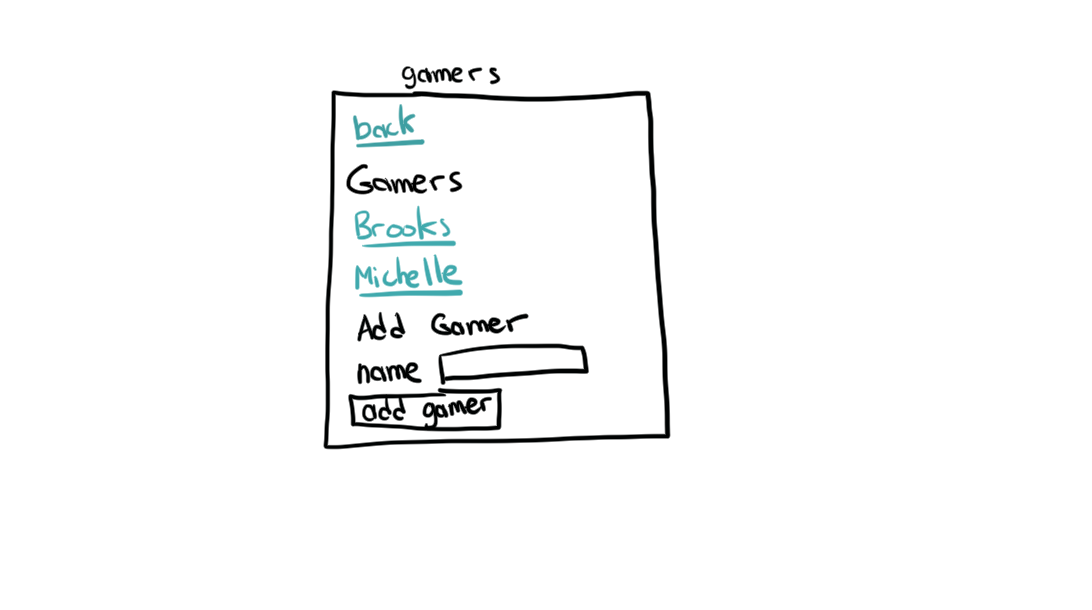 gamers
back
Gamers
Brooks
Michelle
Add Gamer
name
add gamer